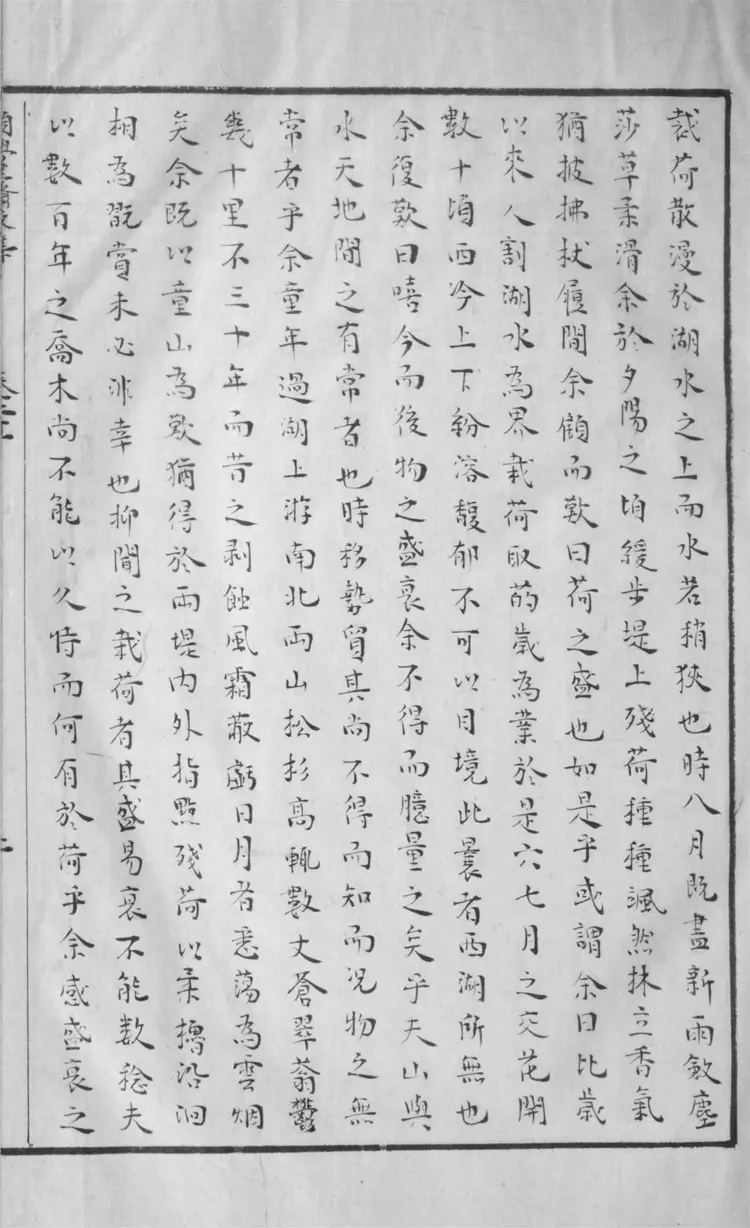 裁荷散漫於湖水之上而水若稍狹也時八月既盡新雨斂塵
莎草柔滑余於夕陽之頃緩步堤上殘荷種種颯然林立香氣
猶披拂杖履間余顧而歎曰荷之盛也如是乎或謂余曰比歲
以來人割湖水為界栽荷取菂歲為業於是六七月之交花開
數十頃西泠上下紛溶馥郁不可以目境此曩者西湖所無也
余復歎曰嘻今而後物之盛衰余不得而臆量之矣乎夫山與
水天地間之有常者也時移勢貿其尚不得而知而況物之無
常者乎余童年過湖上游南北兩山松杉高輒數丈蒼翠蓊鬱
幾十里不三十年而昔之剥蝕風霜蔽虧日月者悉蕩為雲烟
矣余既以童山為歎猶得於兩堤內外指點殘荷以柔擼沿洄
相為翫賞未必非幸也抑聞之栽荷者其盛易衰不能数稔夫
以數百年之喬木尚不能以久恃而何有於荷乎余感盛衰之